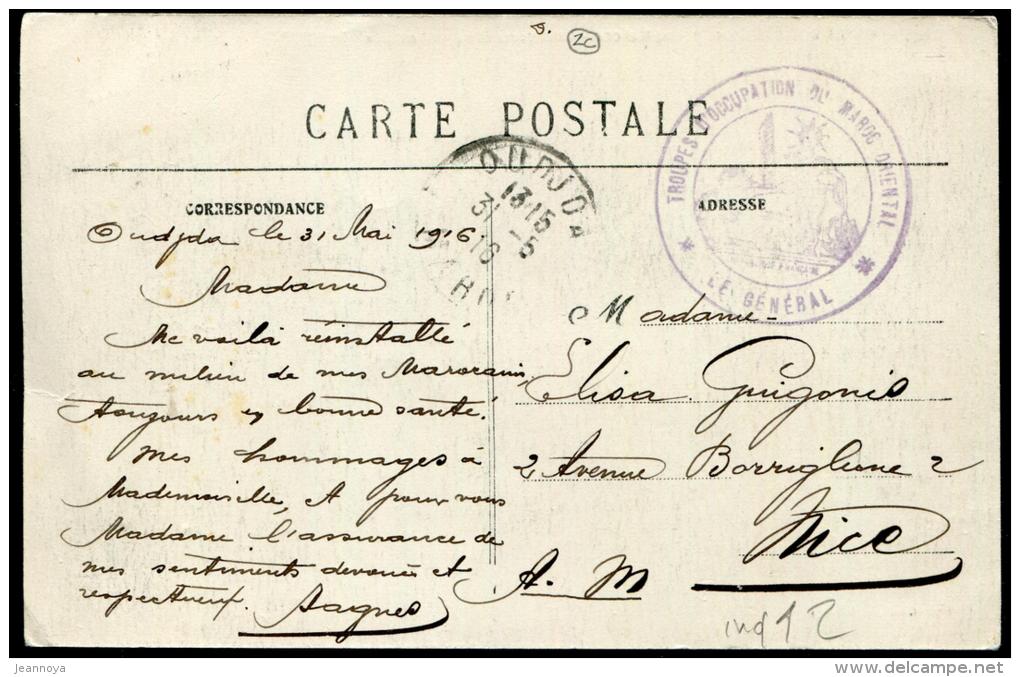 2C
CARTE POSTALE
TROUPES D'OCCUPATION DU MAROC ORIENTAL
LE GÉNÉRAL
OUDJDA
13·15
31 -5
16
CORRESPONDANCE
ADRESSE
Oudjda le 31 Mai 1916.
Madame
Me voilà réinstallé
au milieu de mes Marocains,
toujours en bonne santé.
Mes hommages à
Mademoiselle, et pour vous
Madame l'assurance de
mes sentiments devoués et
respectueux.
Madame
Elisa Guigonis
2 Avenue Borriglione 2
Nice
A. M
12
jeannoya
delcampe.net